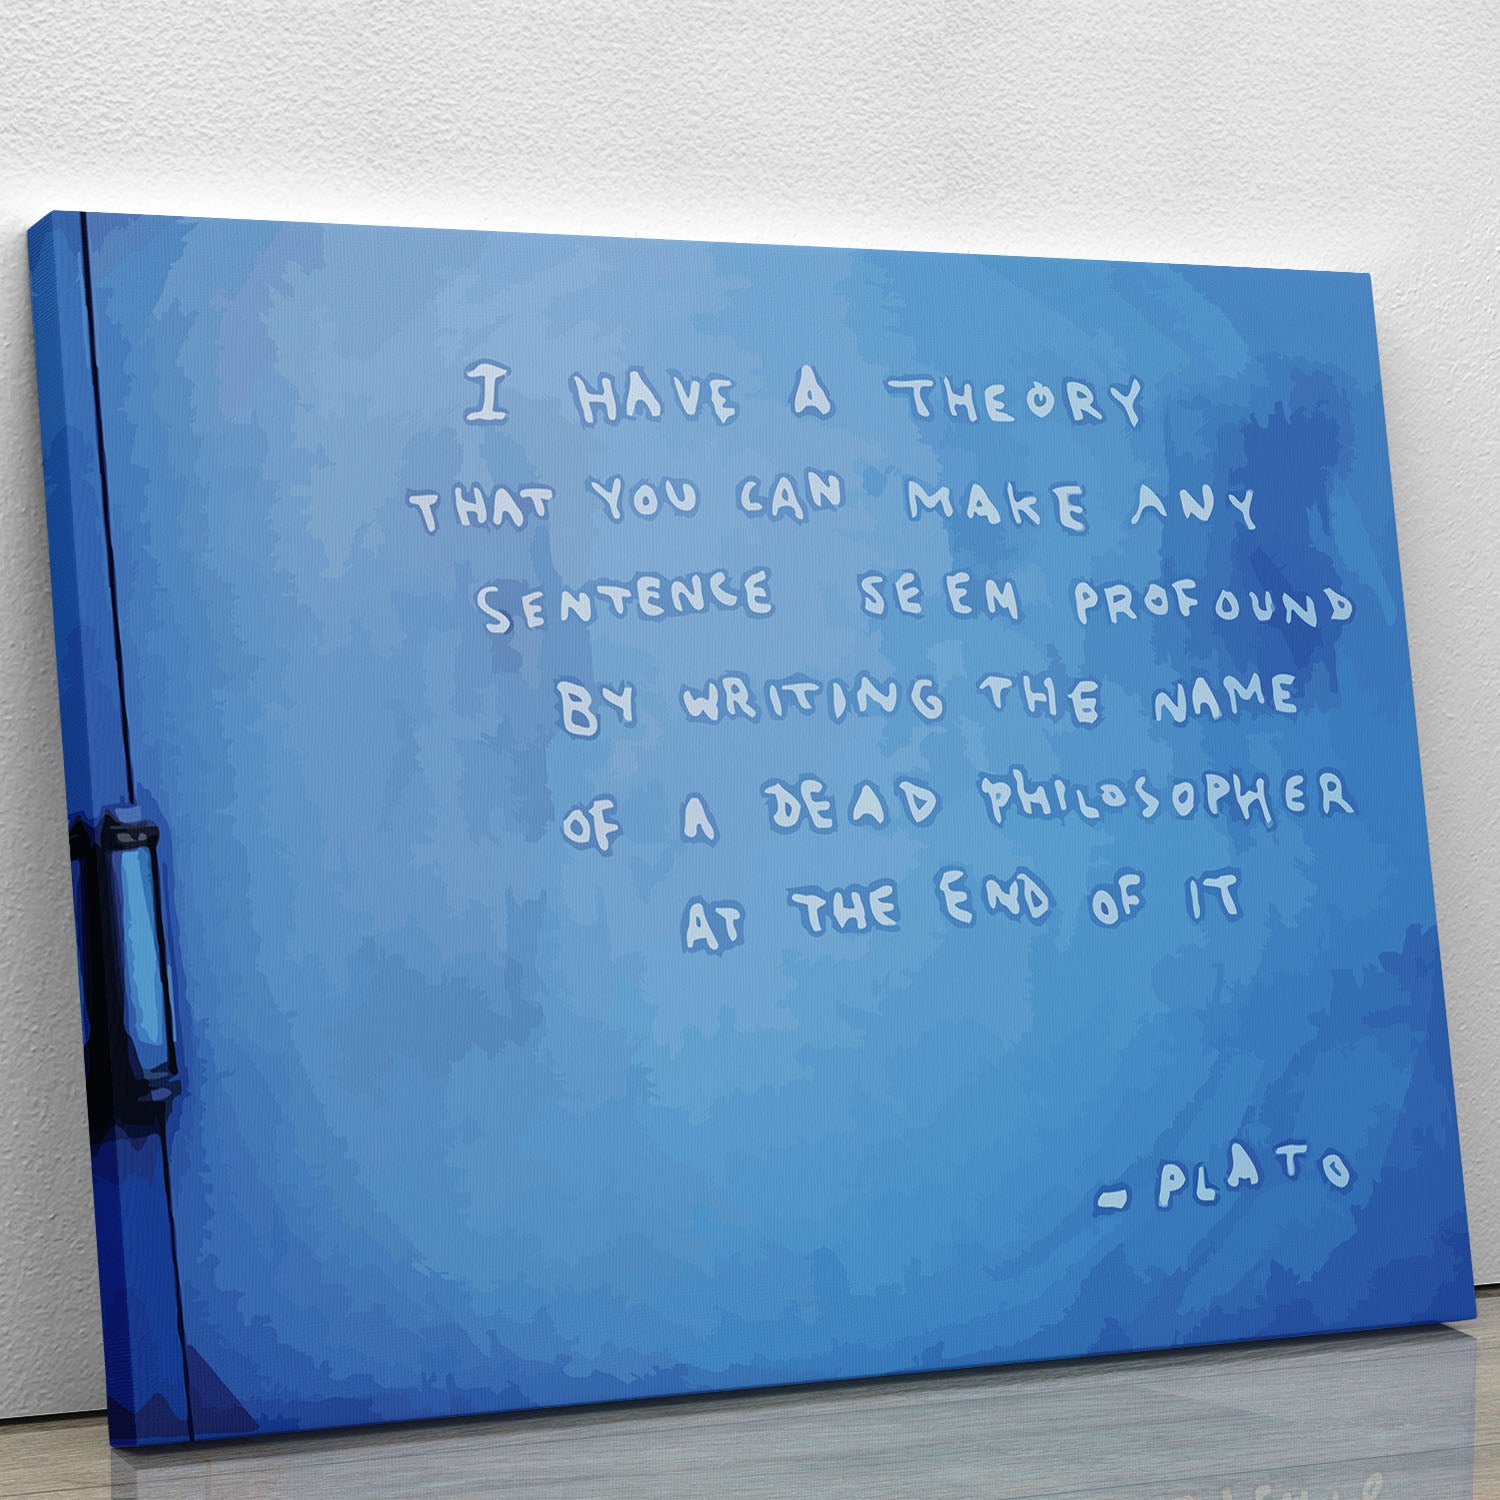 I HAVE A THEORY
THAT YOU CAN MAKE ANY
SENTENCE SEEM PROFOUND
BY WRITING THE NAME
OF A DEAD PHILOSOPHER
AT THE END OF IT
- PLATO